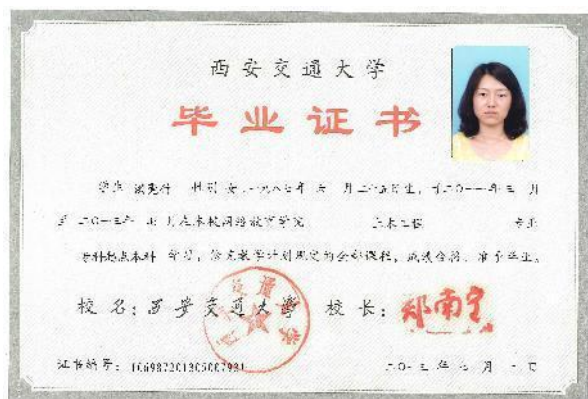 西安交通大学
毕业证书
学生 性别 女,一九八七年 月二十五日生,于二〇一一年三月
至二〇一三年 月在本校网络教育学院 土木工程 专业
专科起点本科 学习,修完教学计划规定的全部课程,成绩合格,准予毕业。
校名:西安交通大学 校长:郑南宁
证书编号: 二〇一三年七月 日